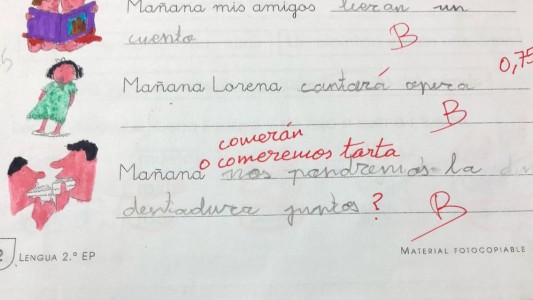 Mañana mis amigos leeran un
cuento B
0,75
Mañana Lorena cantará opera
B
comerán
o comeremos tarta
Mañana nos pondremos la
dentadura juntos ? B
LENGUA 2.º EP MATERIAL FOTOCOPIABLE